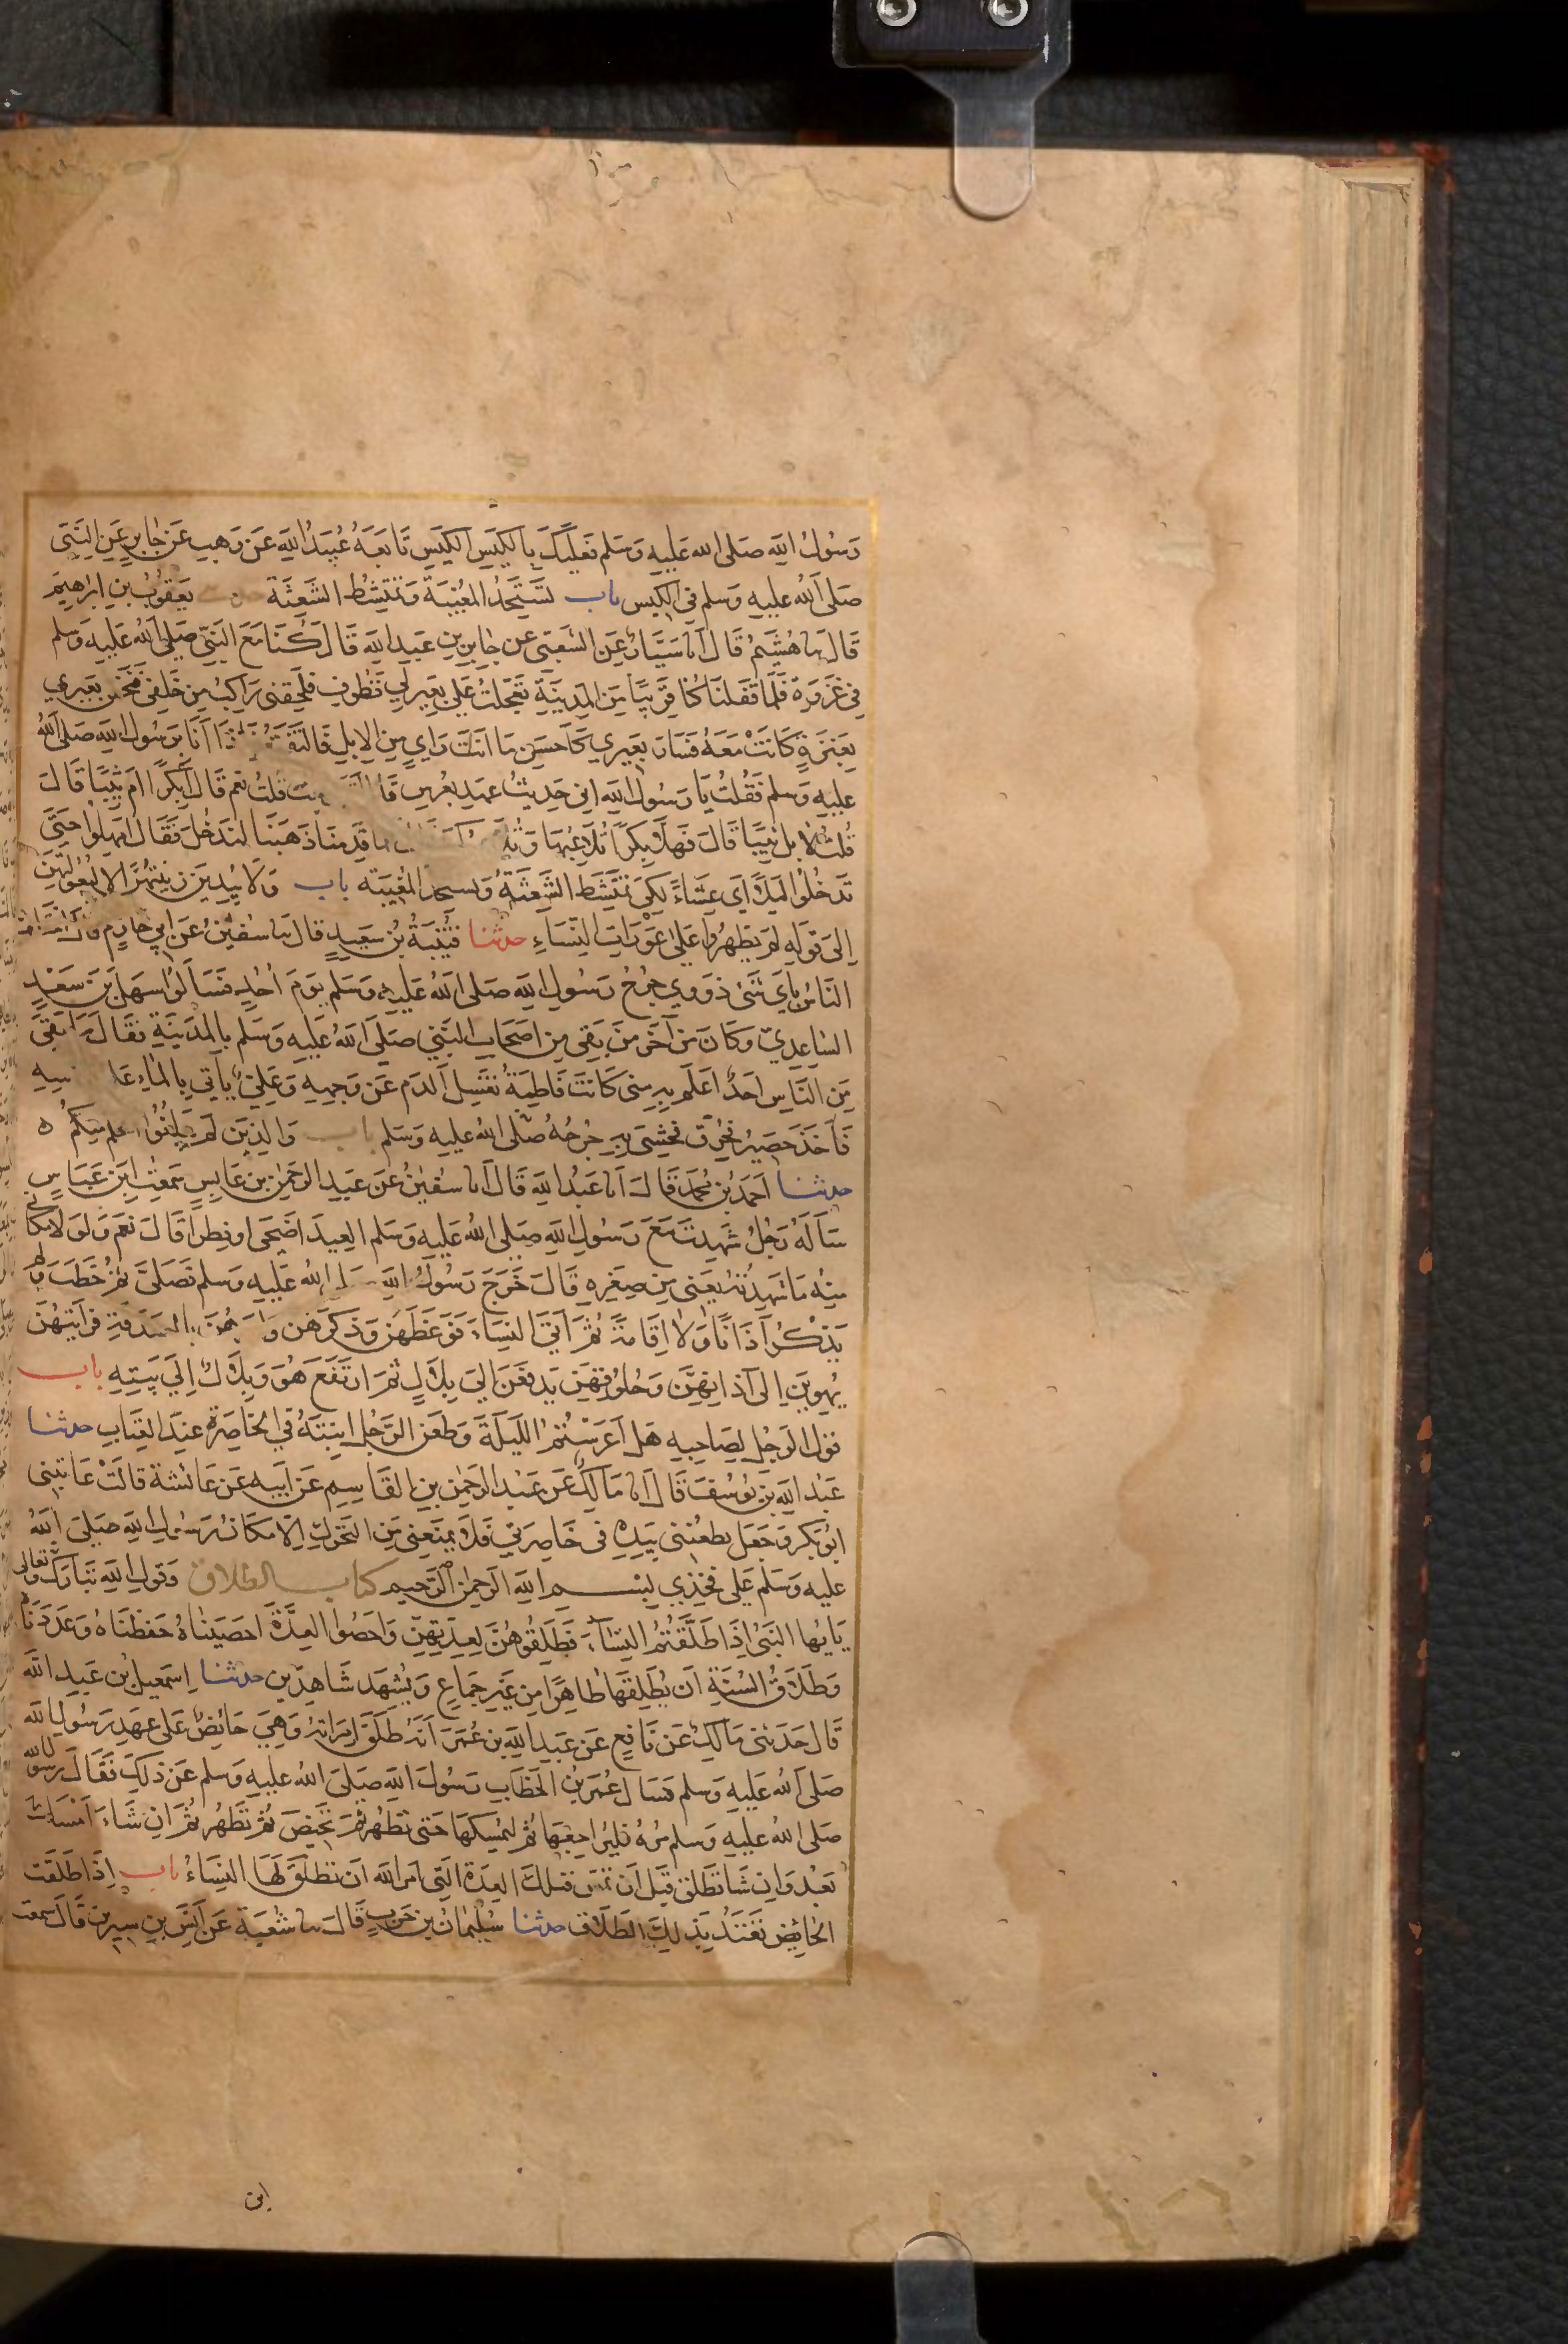 رسول الله صلى الله عليه وسلم فعليك بالكيس الكيس تابعه عبيد الله عن وهب عن جابر عن النبى
صلى الله عليه وسلم فى الكيس باب تستحد المغيبة وتمتشط الشعثة يعقوب بن ابرهيم
قال ما هشيم قال انا سيار عن الشعبى عن جابر بن عبد الله قال كنا مع النبى صلى الله عليه وسلم
فى غزوة فلما قفلنا كنا قريبا من المدينة تعجلت على بعير لى قطوف فلحقنى راكب من خلفى فنخس بعيري
بعنزة كانت معه فسار بعيري كاحسن ما انت راي من الابل فالتفت فاذا انا برسول الله صلى الله
عليه وسلم فقلت يا رسول الله انى حديث عهد بعرس قال قلت نعم قال ابكرا ام ثيبا قال
قلت لا بل ثيبا قال فهلا بكرا تلاعبها و قدمنا ذهبنا لندخل فقال امهلوا حتى
تدخلوا ليلا اي عشاء لكى تمتشط الشعثة وتستحد المغيبة باب ولا يبدين زينتهن الا لبعولتهن
الى قوله لم يظهروا على عورات النساء حدثنا قتيبة بن سعيد قال ما سفين عن ابى حازم قال اختلف
الناس باي شى ذووي جرح رسول الله صلى الله عليه وسلم يوم احد فسالوا سهل بن سعد
الساعدي وكان من آخر من بقى من اصحاب النبى صلى الله عليه وسلم بالمدينة فقال وما بقى
من الناس احد اعلم به منى كانت فاطمة تغسل الدم عن وجهه وعلى ياتى بالماء
فاخذ حصير فحرق فحشى به جرحه صلى الله عليه وسلم باب والذين لم يبلغوا الحلم منكم
حدثنا احمد بن محمد قال انا عبد الله قال انا سفين عن عبد الرحمن بن عابس سمعت ابن عباس
ساله رجل شهدت مع رسول الله صلى الله عليه وسلم العيد اضحى او فطرا قال نعم ولولا مكانى
منه ما شهدته يعنى من صغره قال خرج رسول الله صلى الله عليه وسلم فصلى ثم خطب ولم
يذكر اذانا ولا اقامة ثم اتى النساء فوعظهن وذكرهن وامرهن بالصدقة فرايتهن
يهوين الى آذانهن وحلوقهن يدفعن الى بلال ثم ارتفع هو وبلال الى بيته باب
قول الرجل لصاحبه هل اعرستم الليلة وطعن الرجل ابنته فى الخاصرة عند العتاب حدثنا
عبد الله بن يوسف قال انا مالك عن عبد الرحمن بن القاسم عن ابيه عن عائشة قالت عاتبنى
ابو بكر وجعل يطعننى بيده فى خاصرتى فلا يمنعنى من التحرك الا مكان رسول الله صلى الله
عليه وسلم على فخذي بسم الله الرحمن الرحيم كتاب الطلاق وقول الله تبارك وتعالى
يايها النبى اذا طلقتم النساء فطلقوهن لعدتهن واحصوا العدة احصيناه حفظناه وعددناه
وطلاق السنة ان يطلقها طاهرا من غير جماع ويشهد شاهدين حدثنا اسمعيل بن عبد الله
قال حدثنى مالك عن نافع عن عبد الله بن عمر انه طلق امراته وهى حائض على عهد رسول الله
صلى الله عليه وسلم فسال عمر بن الخطاب رسول الله صلى الله عليه وسلم عن ذلك فقال رسول الله
صلى الله عليه وسلم مره فليراجعها ثم ليمسكها حتى تطهر ثم تحيض ثم تطهر ثم ان شاء امسك
بعد وان شا طلق قبل ان تمس فتلك العدة التى امر الله ان تطلق لها النساء باب اذا طلقت
الحائض تعتد بذلك الطلاق حدثنا سليمان بن حرب قال ما شعبة عن انس بن سيرين قال سمعت
ابن